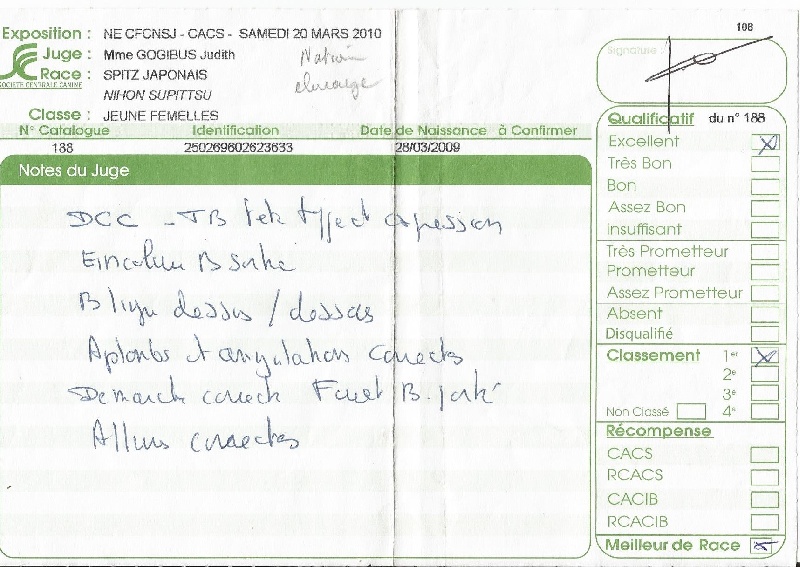 108
Exposition : NE CFCNSJ - CACS - SAMEDI 20 MARS 2010
Juge : Mme GOGIBUS Judith
Race : SPITZ JAPONAIS
SOCIETE CENTRALE CANINE
NIHON SUPITTSU
Classe : JEUNE FEMELLES
N° Catalogue Identification Date de Naissance à Confirmer
188 250269602623633 28/03/2009
Notes du Juge
DCC - TB tete type et expression
Encolure B sortie
B ligne dessus / dessous
Aplombs et angulations corrects
Demarche correcte Fouet B porté
Allures correctes
Signature :
Qualificatif du n° 188
Excellent
Très Bon
Bon
Assez Bon
Insuffisant
Très Prometteur
Prometteur
Assez Prometteur
Absent
Disqualifié
Classement 1er
2e
3e
Non Classé 4e
Récompense
CACS
RCACS
CACIB
RCACIB
Meilleur de Race